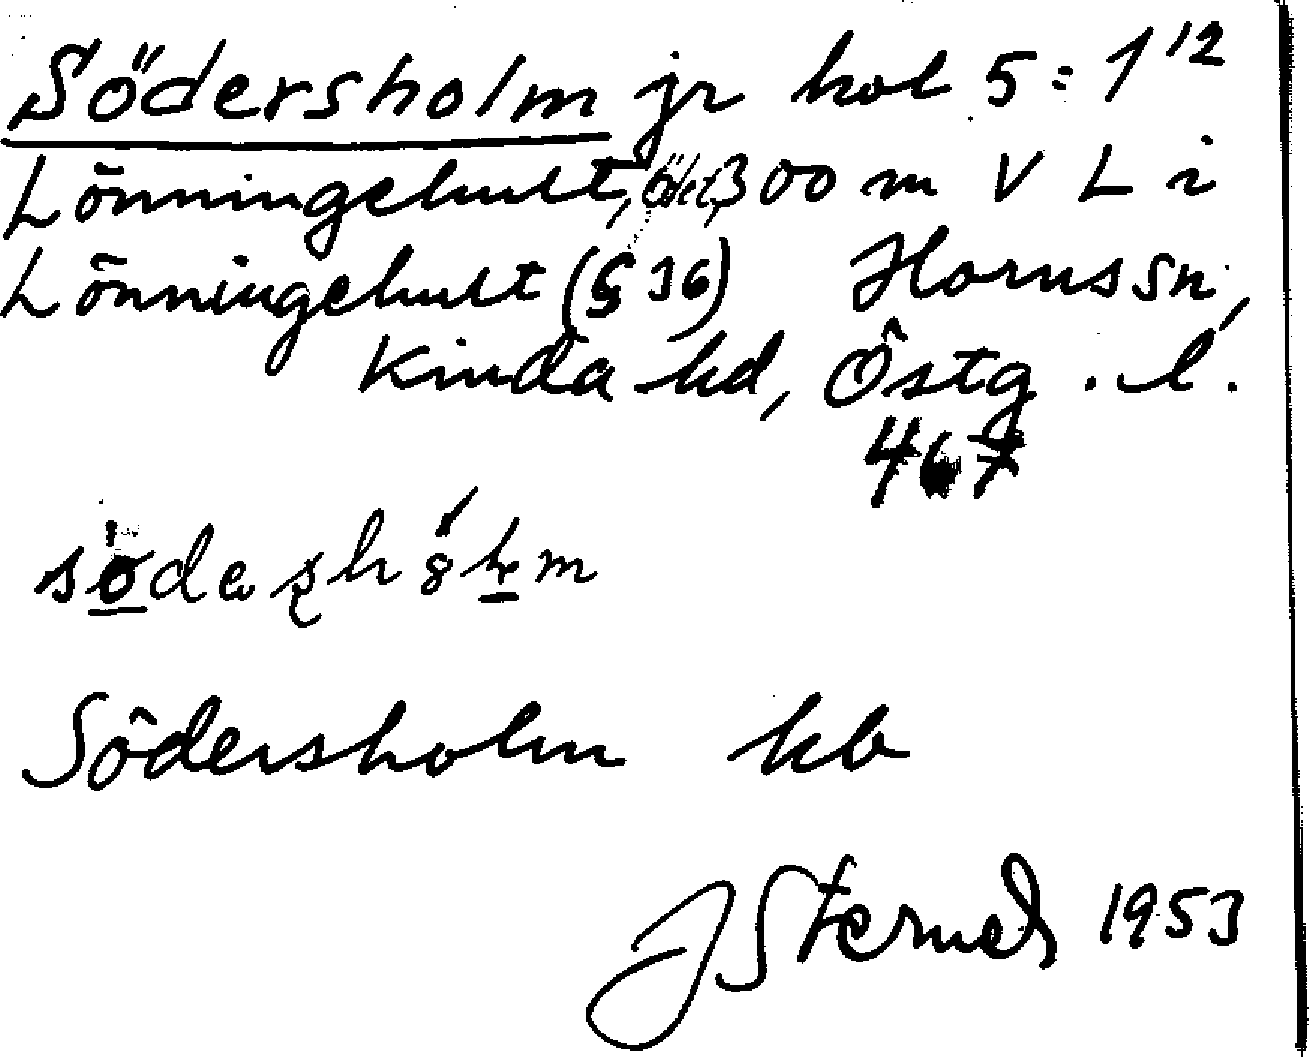 Södersholm jr kol 5:1¹²
Lönningehult, 300 m V L i
Lönningehult (§ 36) Horns sn,
Kinda hd, Östg. l.
467
södaʂhólm
Södersholm kb
J Sterner 1953